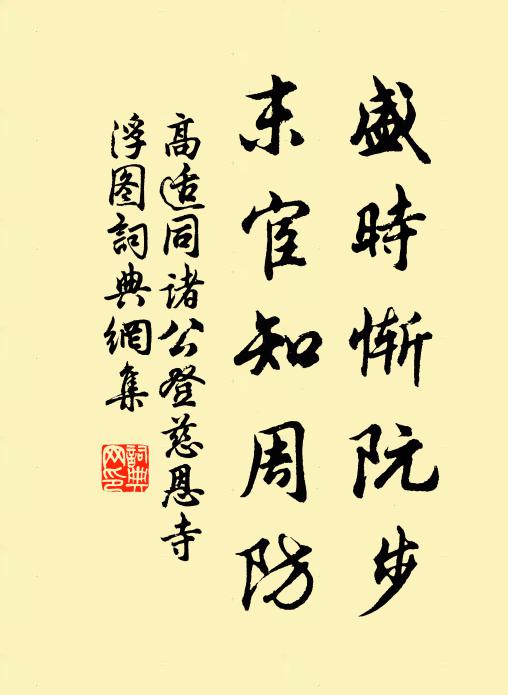 盛時慚阮步
末宦知周防
高适同諸公登慈恩寺
浮图詞典網集
詞典网印